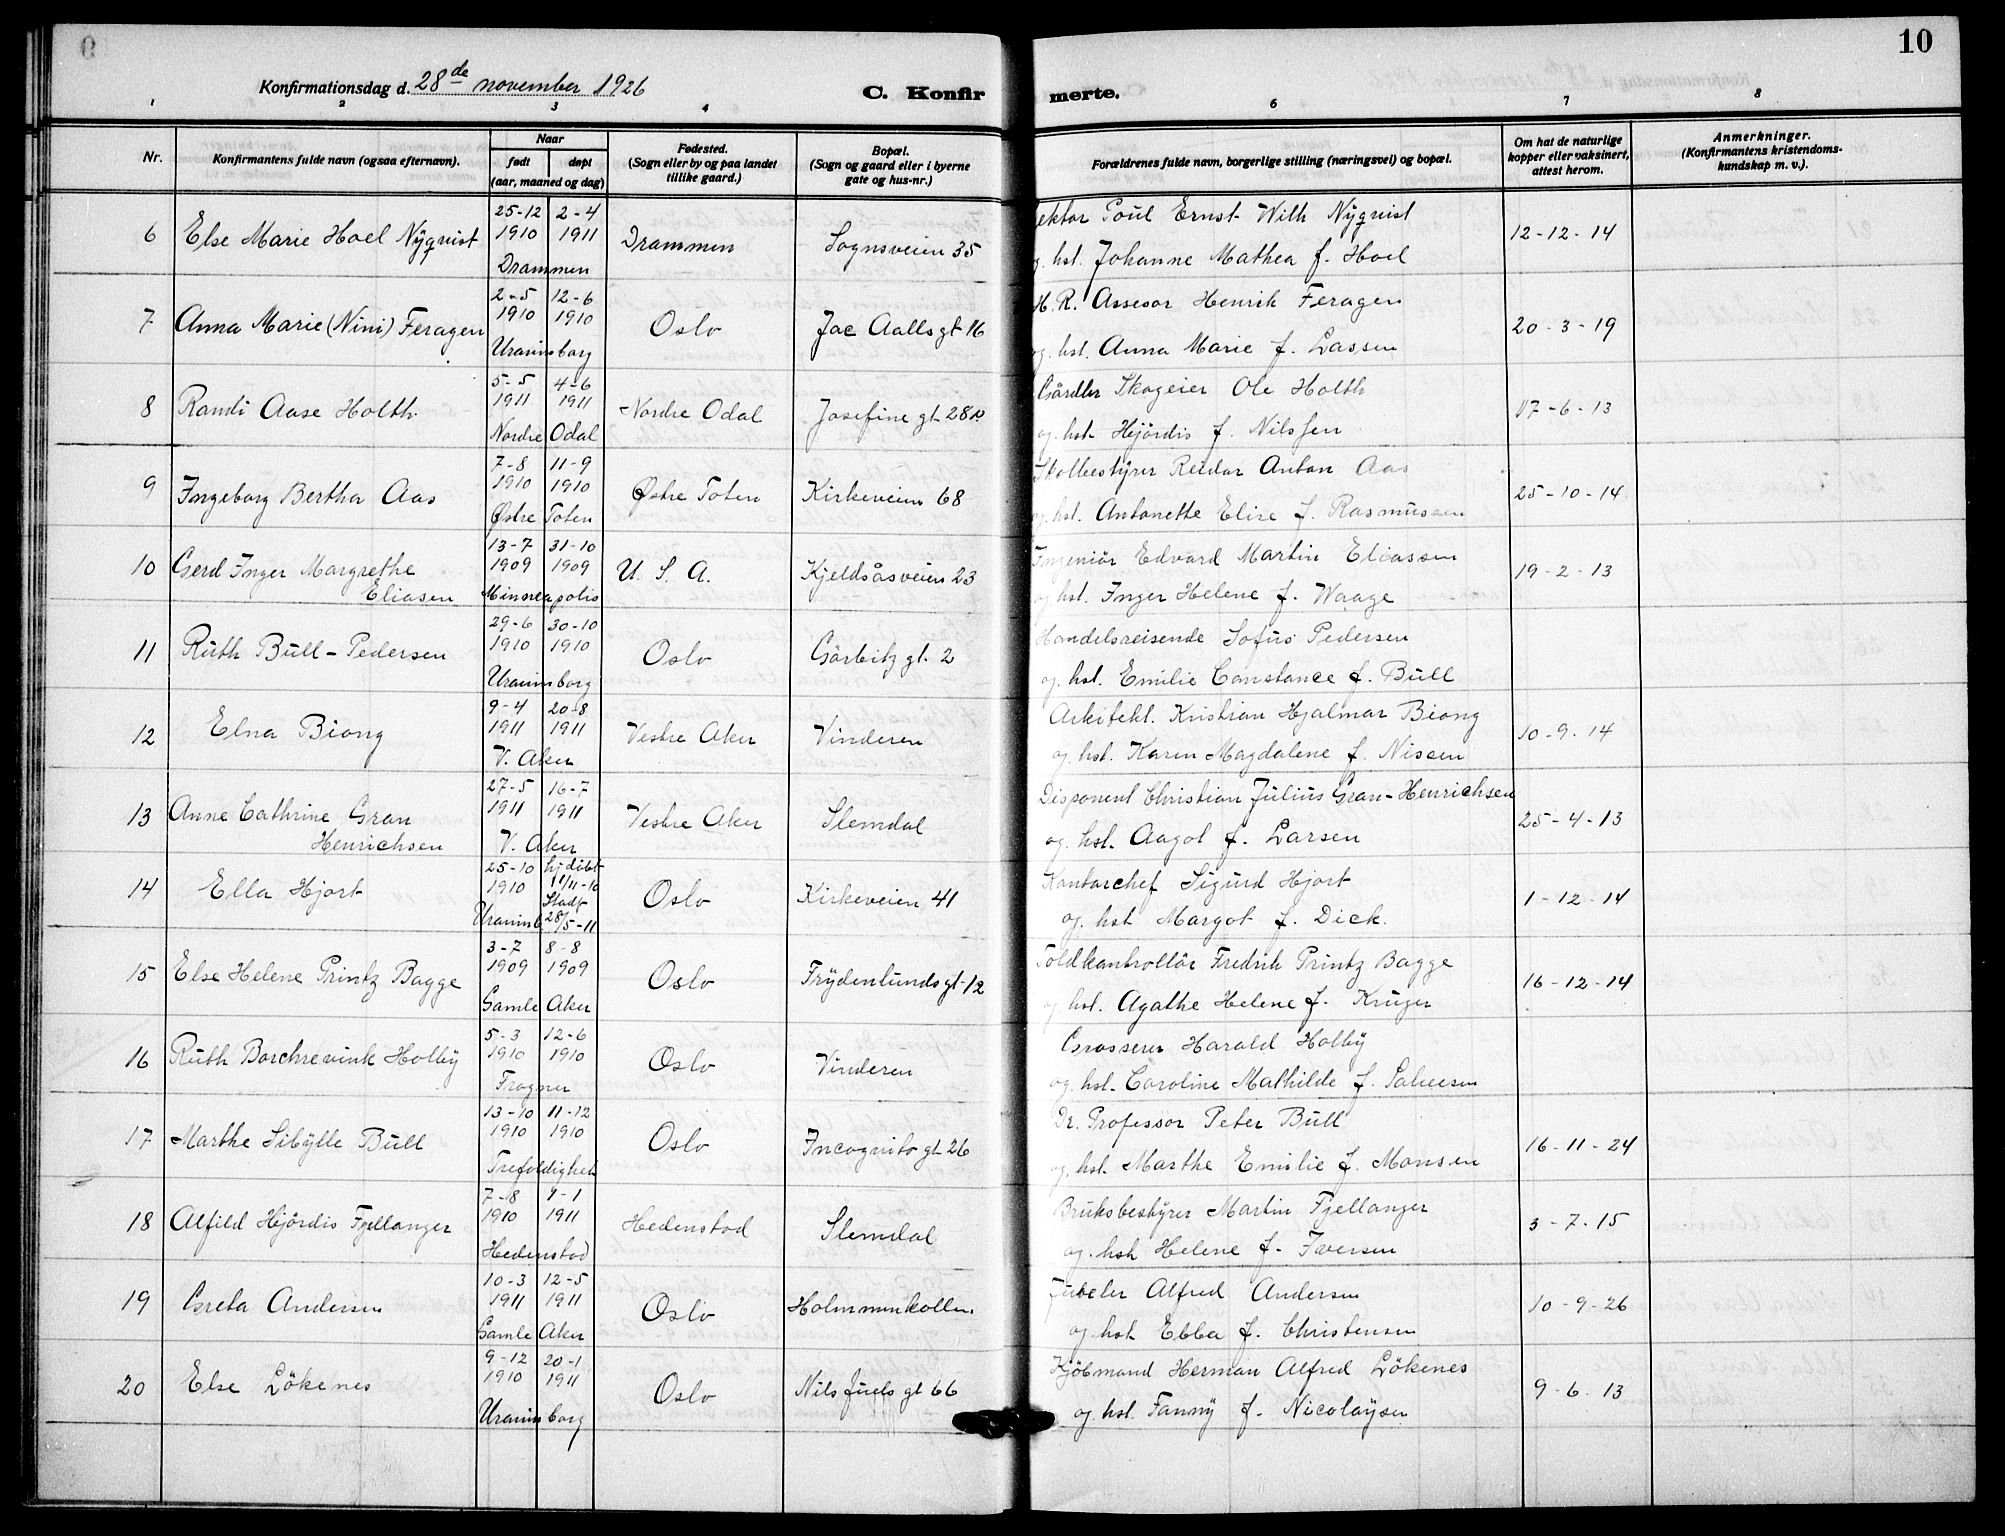 10
Konfirmationsdag d. 28de november 1926
C. Konfirmerte.
1 2 3 4 6 7 8
Nr.
Konfirmantens fulde navn (ogsaa efternavn).
Naar
født døpt
(aar, maaned og dag)
Fødested.
(Sogn eller by og paa landet
tillike gaard.)
Bopæl.
(Sogn og gaard eller i byerne
gate og hus-nr.)
Forældrenes fulde navn, borgerlige stilling (næringsvei) og bopæl.
Om hat de naturlige
kopper eller vaksinert,
attest herom.
Anmerkninger.
(Konfirmantens kristendoms-
kundskap m. v.).
6 Else Marie Hoel Nÿquist 25-12 1910 2-4 1911 Drammen Drammen Sognsveien 35
ektor Poul Ernst Wilh Nÿquist
og hst. Johanne Mathea f. Hoel 12-12-14
7 Anna Marie (Nini) Feragen 2-5 1910 12-6 1910 Uranienborg Oslo Jac Aallsgt 16
H. R. Assesor Henrik Feragen
og. hst. Anna Marie f. Lassen 20-3-19
8 Randi Aase Holth 5-5 1911 4-6 1911 Nordre Odal Nordre Odal Josefine gt 28
Gårdbr Skogeier Ole Holth
og. hst. Hjördis f. Nilssen 17-6-13
9 Ingeborg Bertha Aas 7-8 1910 11-9 1910 Østre Toten Østre Toten Kirkeveien 68
Skolbestÿrer Reidar Anton Aas
og. hst. Antonette Elise f. Rasmussen 25-10-14
10 Gerd Inger Margrethe
Eliasen 13-7 1909 31-10 1909 Minneapolis U. S. A. Kjeldsåsveien 23
Ingeniör Edvard Martin Eliassen
og hst. Inger Helene f. Waage 19-2-13
11 Ruth Bull-Pedersen 29-6 1910 30-10 1910 Uranienborg Oslo Görbitz gt. 2
Handelsreisende Sofus Pedersen
og. hst. Emilie Constance f. Bull
12 Elna Biong 9-4 1911 20-8 1911 V. Aker Vestre Aker Vinderen
Arkitekt. Kristian Hjalmar Biong
og hst. Karen Magdalene f. Nissen 10-9-14
13 Anne Cathrine Gran
Henrichsen 27-5 1911 16-7 1911 V. Aker Vestre Aker Slemdal
Disponent Christian Julius Gran-Henrichsen
og. hst. Aagot f. Larsen 25-4-13
14 Ella Hjort 25-10 1910 hjdöbt 11/11-10 Stadf 28/5-11 Uranienb. Oslo Kirkeveien 41
Kontorchef Sigurd Hjort
og. hst Margot f. Dick. 1-12-14
15 Else Helene Printz Bagge 3-7 1909 8-8 1909 Gamle Aker Oslo Frÿdenlundsgt-12
Toldkontrollör Fredrik Printz Bagge
og hst. Agathe Helene f. Krüger 16-12-14
16 Ruth Borchrevink Holbÿ 5-3 1910 12-6 1910 Frogner Oslo Vinderen
Grosserer Harald Holbÿ
og. hst. Caroline Mathilde f.
17 Marthe Sibÿlle Bull 13-10 1910 11-12 1910 Trefoldighet Oslo Incognito gt 26
Dr. Professor Peter Bull
og. hst. Marthe Emilie f. Monsen 16-11-24
18 Alfild Hjördis Fjellanger 7-8 1910 1-1 1911 Hedenstad Hedenstad Slemdal
Bruksbestÿrer Martin Fjellanger
og. hst Helene f. Iversen 3-7-15
19 Greta Andersen 10-3 1911 12-5 1911 Gamle Aker Oslo Holmmenkollen.
Juveler Alfred Andersen
og hst Ebba f. Christensen 10-9-26
20 Else Lökenes 9-12 1910 20-1 1911 Uranienborg Oslo Nils Juels gt 66
Kjöbmand Herman Alfred Lökenes
og. hst. Fannÿ f. Nicolaÿsen 9-6-13